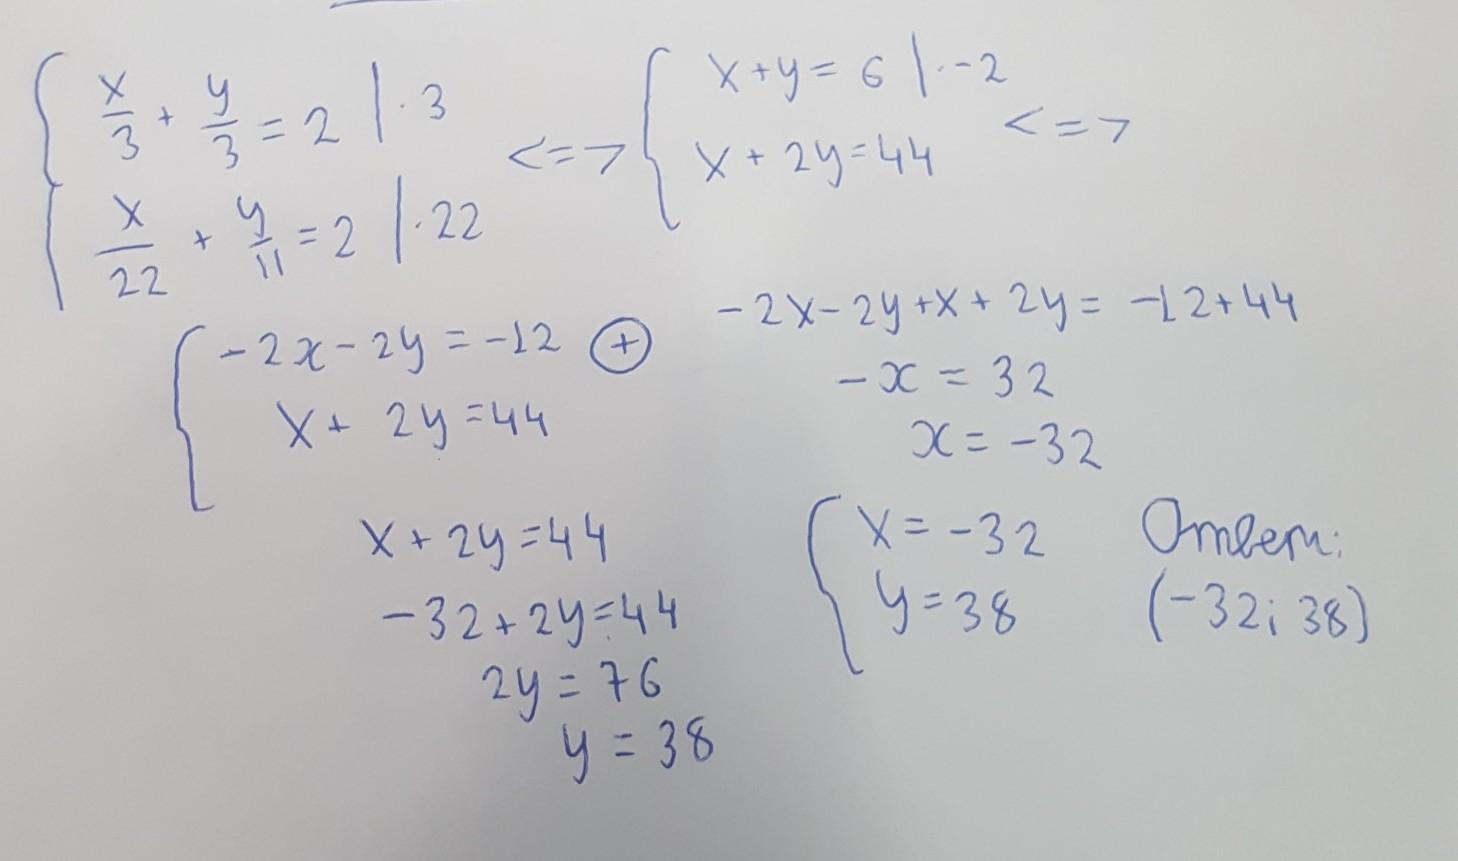 x/3 + y/3 = 2 | · 3
x/22 + y/11 = 2 | · 22
<=>
x + y = 6 | · -2
x + 2y = 44
<=>
-2x - 2y = -12 ⊕
x + 2y = 44
-2x - 2y + x + 2y = -12 + 44
-x = 32
x = -32
x + 2y = 44
-32 + 2y = 44
2y = 76
y = 38
x = -32
y = 38
Ответ:
(-32; 38)